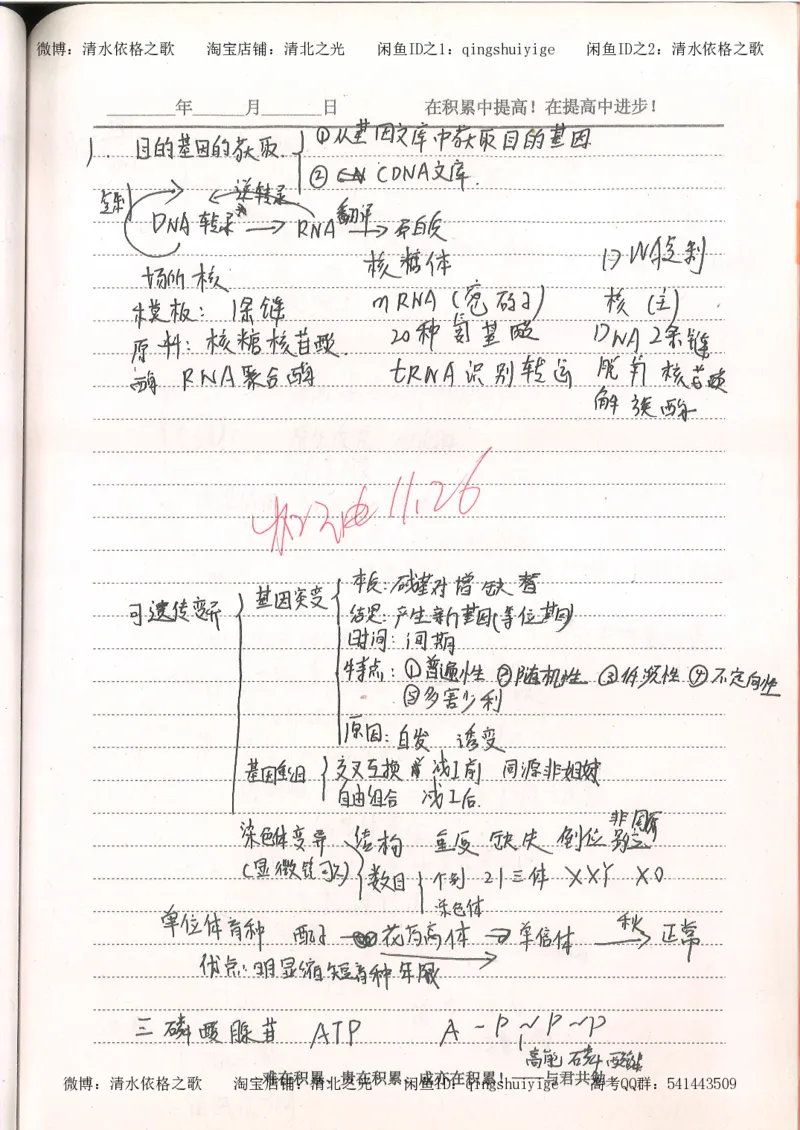 微博：清水依格之歌 淘宝店铺：清北之光 闲鱼ID之1：qingshuiyige 闲鱼ID之2：清水依格之歌
年 月 日 在积累中提高！在提高中进步！
1. 目的基因的获取 ①从基因文库中获取目的基因
② CDNA文库.
复制 逆转录 翻译
DNA 转录 → RNA → 蛋白质
场所 核 核糖体 DNA复制
模板：1条链 mRNA（密码子） 核（主）
原料：核糖核苷酸. 20种氨基酸 DNA 2条链
酶 RNA聚合酶 tRNA识别转运 脱氧核苷酸
解旋酶
11.26
可遗传变异 基因突变 本质：碱基对增缺替
结果：产生新基因(等位基因)
时间：间期
特点：①普遍性 ②随机性 ③低频性 ④不定向性
⑤多害少利
原因：自发 诱变
基因重组 交叉互换 减I前 同源非姐妹
自由组合 减I后.
染色体变异 结构 重复 缺失 倒位 易位 非同源
(显微镜可见) 数目 个别 21三体 XXY XO
染色体
单位体育种 配子 → 花药离体 → 单倍体 秋 → 正常
优点：明显缩短育种年限
三磷酸腺苷 ATP A-P~P~P
高能磷酸键
难在积累，贵在积累，成亦在积累！——与君共勉
微博：清水依格之歌 淘宝店铺：清北之光 闲鱼ID：qingshuiyige 高考QQ群：541443509